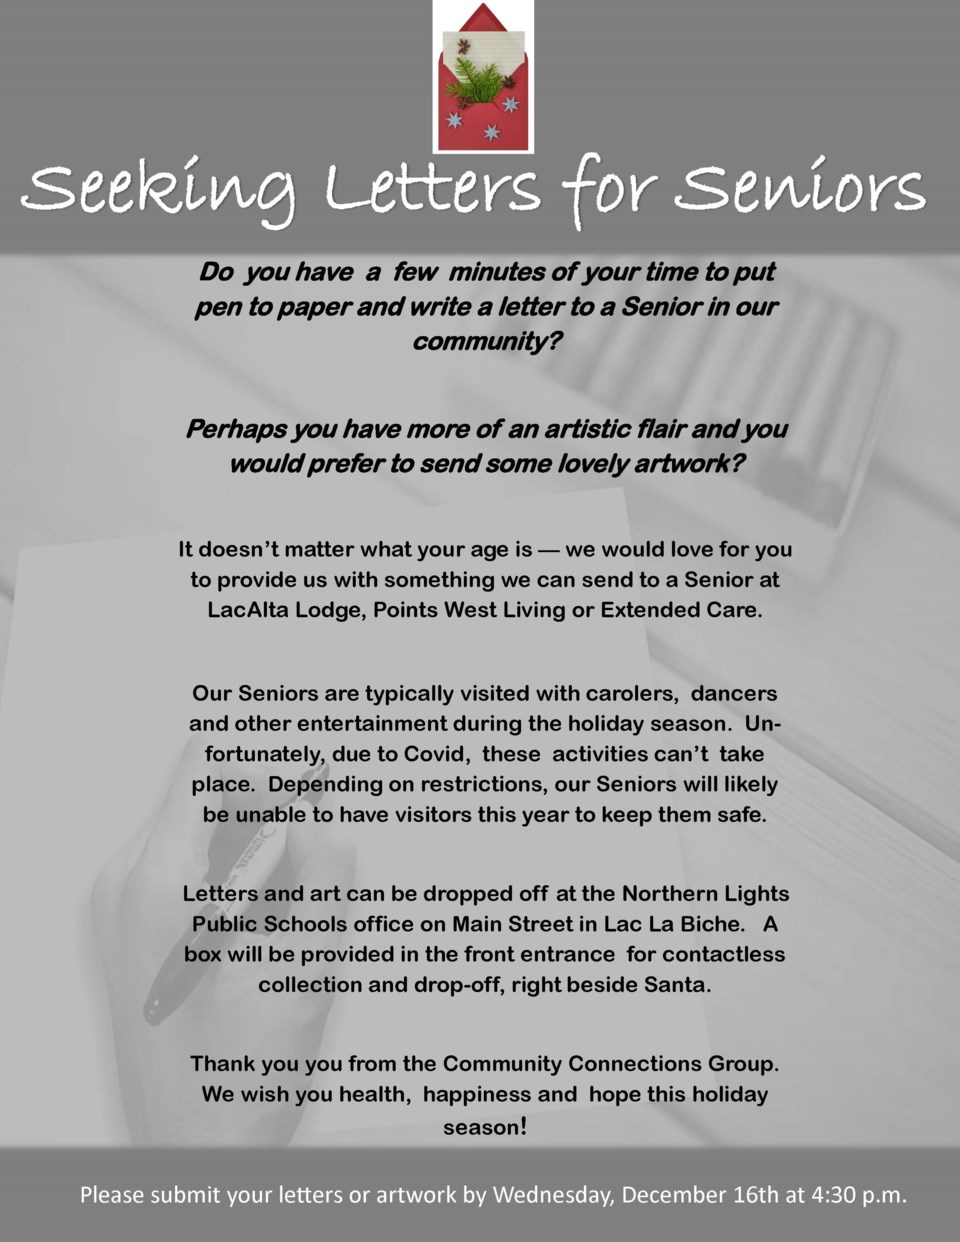 Seeking Letters for Seniors
Do you have a few minutes of your time to put
pen to paper and write a letter to a Senior in our
community?
Perhaps you have more of an artistic flair and you
would prefer to send some lovely artwork?
It doesn’t matter what your age is — we would love for you
to provide us with something we can send to a Senior at
LacAlta Lodge, Points West Living or Extended Care.
Our Seniors are typically visited with carolers, dancers
and other entertainment during the holiday season. Un-
fortunately, due to Covid, these activities can’t take
place. Depending on restrictions, our Seniors will likely
be unable to have visitors this year to keep them safe.
Letters and art can be dropped off at the Northern Lights
Public Schools office on Main Street in Lac La Biche. A
box will be provided in the front entrance for contactless
collection and drop-off, right beside Santa.
Thank you you from the Community Connections Group.
We wish you health, happiness and hope this holiday
season!
Please submit your letters or artwork by Wednesday, December 16th at 4:30 p.m.